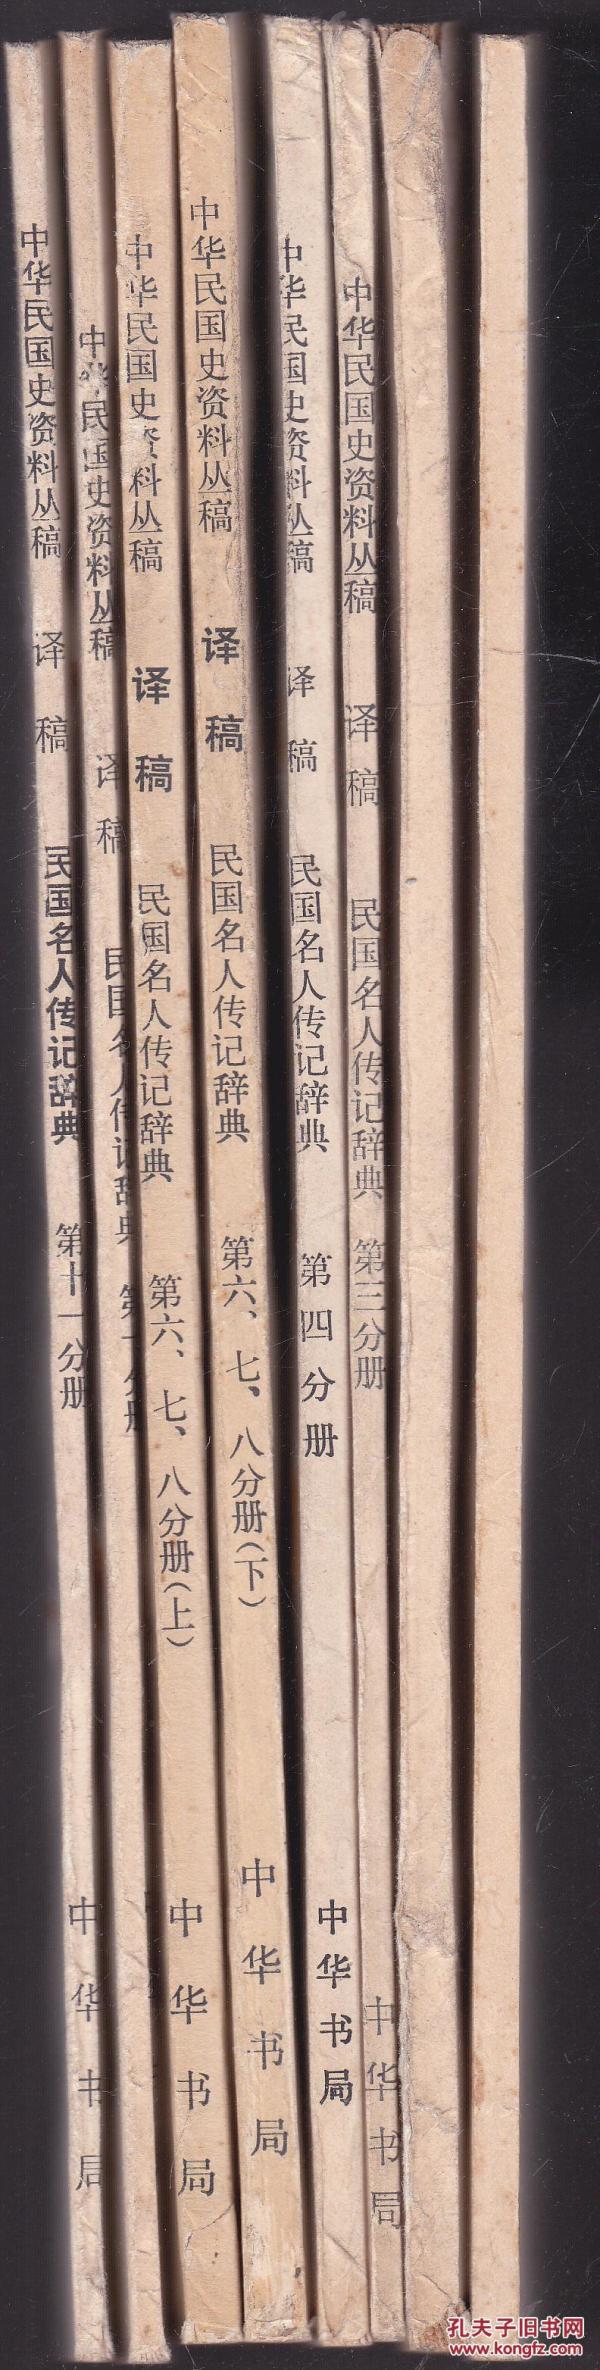 中华民国史资料丛稿 译稿 民国名人传记辞典 第十一分册 中华书局
中华民国史资料丛稿 译稿 民国名人传记辞典 第 分册
中华民国史资料丛稿 译稿 民国名人传记辞典 第六、七、八分册(上) 中华书局
中华民国史资料丛稿 译稿 民国名人传记辞典 第六、七、八分册(下) 中华书局
中华民国史资料丛稿 译稿 民国名人传记辞典 第四分册 中华书局
中华民国史资料丛稿 译稿 民国名人传记辞典 第三分册 中华书局
孔夫子旧书网
www.kongfz.com